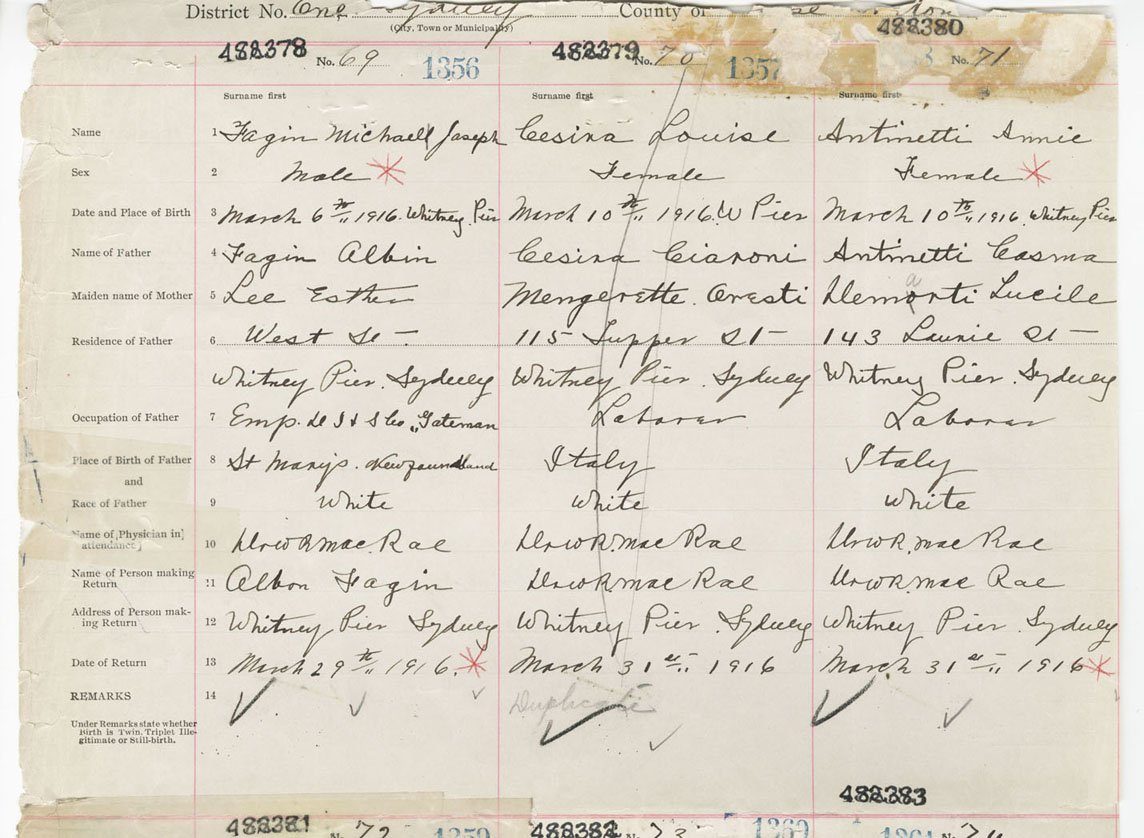 District No. One Sydney County of
(City, Town or Municipality)
488378 488379 488380
No. 69 1356 No. 70 1357 No. 71
Surname first Surname first Surname first
Name 1 Fagin Michael Joseph Cesira Louise Antinetti Annie
Sex 2 Male Female Female
Date and Place of Birth 3 March 6th 1916. Whitney Pier March 10th 1916. W Pier March 10th 1916 Whitney Pier
Name of Father 4 Fagin Albin Cesira Ciaroni Antinetti Casma
Maiden name of Mother 5 Lee Esther Mengerette. Oresti Lucile
Residence of Father 6 West St 115 Tupper St 143 Laurie St
Whitney Pier. Sydney Whitney Pier. Sydney Whitney Pier. Sydney
Occupation of Father 7 Emp. D I & S Co. Gateman Laborer Laborer
Place of Birth of Father 8 St Marys. Newfoundland Italy Italy
and
Race of Father 9 White White White
Name of Physician in
attendance 10 Dr W R. Mac Rae Dr W R. Mac Rae Dr W R. Mac Rae
Name of Person making
Return 11 Albon Fagin Dr W R. Mac Rae Dr W R. Mac Rae
Address of Person mak-
ing Return 12 Whitney Pier Sydney Whitney Pier. Sydney Whitney Pier. Sydney
Date of Return 13 March 29th 1916. March 31st 1916 March 31st 1916
REMARKS 14 Duplicate
Under Remarks state whether
Birth is Twin, Triplet Ille-
gitimate or Still-birth.
488383
488381 No. 72 1359 488382 73 1360